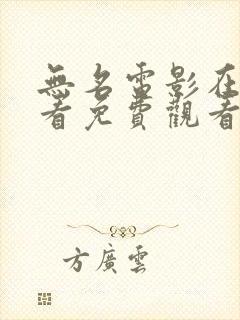 無名電影在
看免費觀看
方廣雲